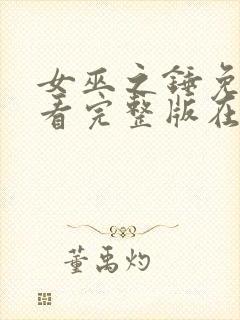 女巫之锤免
看完整版在
董禹灼